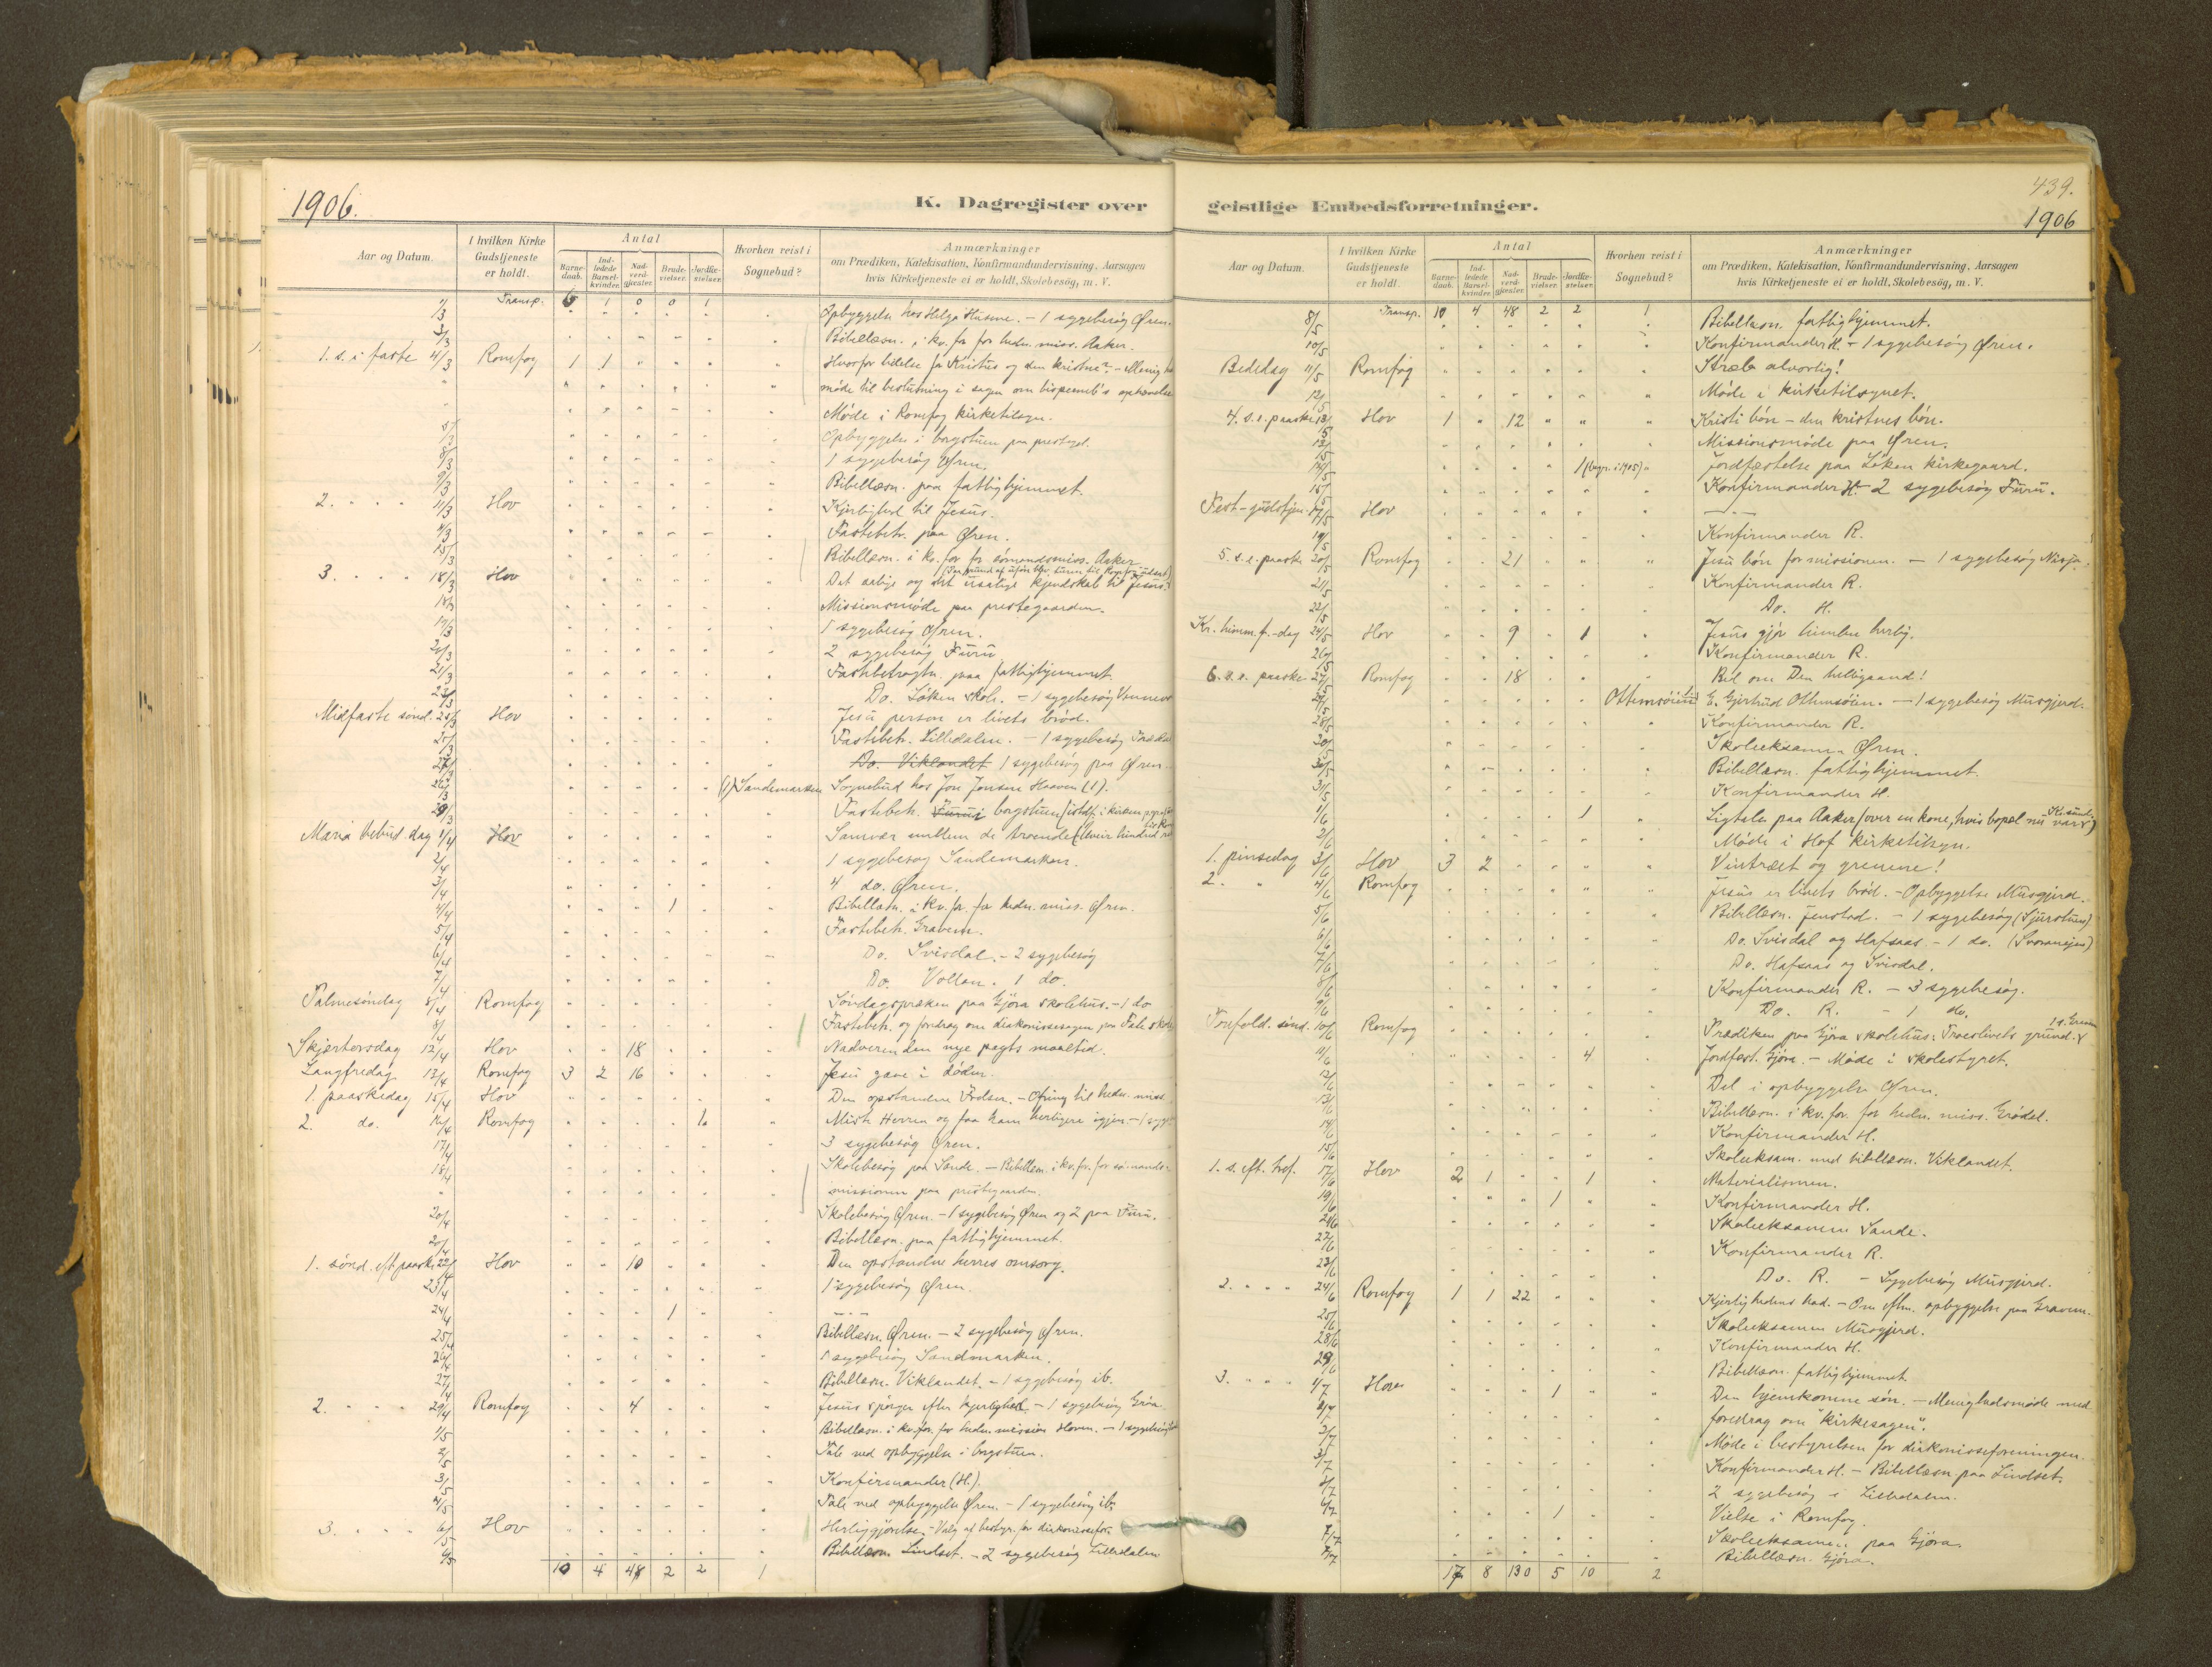 1906.
K. Dagregister over
Aar og Datum.
I hvilken Kirke Gudstjeneste er holdt.
Antal
Barnedaab.
Indledede Barselkvinder.
Nadverdgjæster.
Brudevielser.
Jordfæstelser.
Hvorhen reist i Sognebud?
Anmærkninger
om Prædiken, Katekisation, Konfirmandundervisning, Aarsagen
hvis Kirketjeneste ei er holdt, Skolebesøg, m. V.
Transp. 6 1 0 0 1
1/3 Opbyggelse hos Helge Husene. - 1 sygebesøg Øren.
3/3 Bibellæsn. i kv. for. for hedn. miss. Aaker.
1. s. i faste 4/3 Romfog 1 1 Hvorfor lidelse for Kristus og den kristne? - Menig
møde til beslutning i sagen om
" Møde i Romfog kirketilsyn.
Opbyggelse i borgstuen paa prestegd.
8/3 1 sygebesøg Øren.
9/3 Bibellæsn. paa fattighjemmet.
2. - - - 11/3 Hov Kjærlighed til Jesus.
Fastebetr. paa Øren.
15/3 Bibellæsn. i kv. for. for sømandsmiss. Aaker
3. - - - 18/3 Hov Det salige og det usalige kjendskab til Jesus.
18/3 Missionsmøde paa prestegaarden.
19/3 1 sygebesøg Øren.
2 sygebesøg Furu
21/3 Fastebetragtn. paa fattighjemmet.
Do. Løken skole. - 1 sygebesøg
Midfaste sønd. 25/3 Hov Jesu person er livets brød.
Fastebetr. Lilledalen. - 1 sygebesøg
Do. Viklandet 1 sygebesøg paa Øren.
(1) Sandemarken Sognebud hos Jon Jonsen Haaven (1).
Fastebetr. Furu i borgstuen
Maria bebud. dag 1/4 Hov Samvær mellem de troende
2/4 1 sygebesøg Sandemarken.
3/4 4 do. Øren.
4/4 1 Bibellæsn. i kv. for. for hedn. miss. Øren.
5/4 Fastebetr. Gravem.
6/4 Do. Svisdal. - 2 sygebesøg
7/4 Do. Vollan. 1 do.
Palmesøndag 8/4 Romfog Søndagspræken paa Gjøra skolehus. - 1 do
8/4 Fastebetr. og foredrag om diakonissesagen paa Fale skole
Skjærtorsdag 12/4 Hov 18 Nadveren den nye pagts maaltid.
Langfredag 13/4 Romfog 3 2 16 Jesu gave i døden.
1. paaskedag 15/4 Hov Den opstandne Frelser. - Ofring til hedn. miss.
2. do. 16/4 Romfog 1 Miste Herren og faa ham herligere igjen. - 1
17/4 3 sygebesøg Øren.
18/4 Skolebesøg paa Sande. - Bibellæsn. i kv. for. for sømands-
" missionen paa prestegaarden.
20/4 Skolebesøg Øren. - 1 sygebesøg Øren og 2 paa Furu.
20/4 Bibellæsn. paa fattighjemmet.
1. sønd. eft. paaske 22/4 Hov 10 Den opstandne herres omsorg.
23/4 1 sygebesøg Øren.
24/4 1 - - -
25/4 Bibellæsn. Øren. - 2 sygebesøg Øren.
26/4 1 sygebesøg Sandmarken.
27/4 Bibellæsn. Viklandet. - 1 sygebesøg ib.
2. - - - 29/4 Romfog 4 Jesus spørger efter kjerlighed. - 1 sygebesøg
1/5 Bibellæsn. i kv. for. for hedn. mission Hoven. - 1 sygebesøg
2/5 Tale ved opbyggelse i borgstuen.
3/5 Konfirmander (H.).
4/5 Tale ved opbyggelse Øren. - 1 sygebesøg ib.
3. - - - 6/5 Hov Herliggjørelse. - Valg af bestyr. for diakonissefor.
6/5 Bibellæsn. Lindset. - 2 sygebesøg Lilledalen
10 4 48 2 2 1
439.
geistlige Embedsforretninger.
1906
Aar og Datum.
I hvilken Kirke Gudstjeneste er holdt.
Antal
Barnedaab.
Indledede Barselkvinder.
Nadverdgjæster.
Brudevielser.
Jordfæstelser.
Hvorhen reist i Sognebud?
Anmærkninger
om Prædiken, Katekisation, Konfirmandundervisning, Aarsagen
hvis Kirketjeneste ei er holdt, Skolebesøg, m. V.
Transp. 10 4 48 2 2 1
8/5 Bibellæsn. fattighjemmet.
10/5 Konfirmander H. - 1 sygebesøg Øren.
Bededag 11/5 Romfog Stræb alvorlig!
12/5 Møde i kirketilsynet.
4. s. e. paaske 13/5 Hov 1 12 Kristi bøn - den kristnes bøn.
13/5 Missionsmøde paa Øren.
1 (begr. i 1905) Jordfæstelse paa Løken kirkegaard.
15/5 Konfirmander H. 2 sygebesøg Furu.
Fest-gudstjen. 17/5 Hov - - -
19/5 Konfirmander R.
5. s. e. paaske 20/5 Romfog 21 Jesu bøn for missionen. - 1 sygebesøg Nisja.
21/5 Konfirmander R.
22/5 Do. H.
Kr. himm. f.-dag 24/5 Hov 9 1 Jesus gjør himlen herlig.
26/5 Konfirmander R.
6. s. e. paaske 27/5 Romfog 18 Bed om Den helligaand!
Ottemsøien E. Gjertrud Ottemsøien. - 1 sygebesøg Musgjerd.
28/5 Konfirmander R.
30/5 Skoleeksamen Øren.
30/5 Bibellæsn. fattighjemmet.
31/5 Konfirmander H.
1/6 1 Ligtale paa Aaker (over en kone, hvis bopel nu var K.sund.)
2/6 Møde i Hof kirketilsyn.
1. pinsedag 3/6 Hov 3 2 Vintræet og grenene!
2. " 4/6 Romfog Jesus er livets brød. - Opbyggelse Musgjerd.
5/6 Bibellæsn. Jenstad. - 1 sygebesøg (Sjurstuen)
6/6 Do. Svisdal og Hafsaas - 1 do.
7/6 Do. Hafsaas og Svisdal.
8/6 Konfirmander R. - 3 sygebesøg.
9/6 Do. R. - 1 do.
Trefold. sønd. 10/6 Romfog Prædiken paa Gjøra skolehus: Troeslivets grund.
11/6 4 Jordfæst. Gjøra. - Møde i skolestyret.
12/6 Del i opbyggelse Øren.
13/6 Bibellæsn. i kv. for. for hedn. miss. Grødal.
14/6 Konfirmander H.
15/6 Skoleeksam. med bibellæsn. Viklandet.
1. s. eft. tref. 17/6 Hov 2 1 1 Materialismen.
19/6 1 Konfirmander H.
Skoleeksamen Sande.
22/6 Konfirmander R.
23/6 Do. R. - Sygebesøg Musgjerd.
2. - - - 24/6 Romfog 1 1 22 Kjerlighedens bud. - Om eftm. opbyggelse paa Gravem.
25/6 Skoleeksamen Musgjerd.
28/6 Konfirmander H.
29/6 Bibellæsn. fattighjemmet.
3. - - - 1/7 Hov 1 Den hjemkomne søn. - Menighedsmøde med
foredrag om "kirkesagen".
2/7 Møde i bestyrelsen for diakonisseforeningen.
3/7 Konfirmander H. - Bibellæsn. paa Lindset.
4/7 2 sygebesøg i Lilledalen.
6/7 1 Vielse i Romfog.
7/7 Skoleeksamen paa Gjøra.
7/7 Bibellæsn. Gjøra.
17 8 130 5 10 2